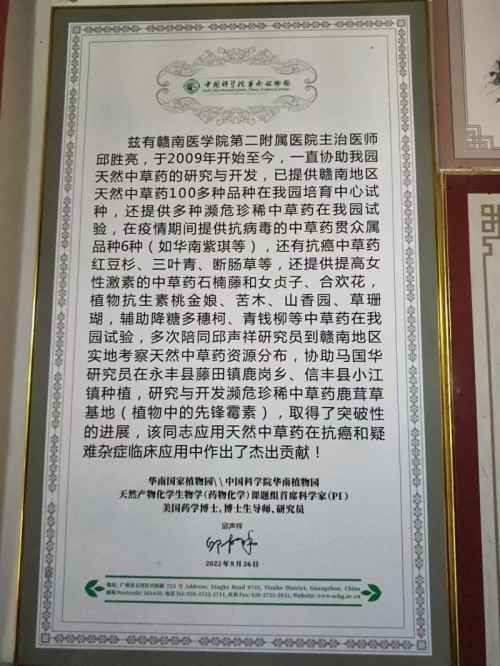 中国科学院华南植物园
South China Botanical Garden, Chinese Academy of Sciences
兹有赣南医学院第二附属医院主治医师
邱胜亮，于2009年开始至今，一直协助我园
天然中草药的研究与开发，已提供赣南地区
天然中草药100多种品种在我园培育中心试
种，还提供多种濒危珍稀中草药在我园试
验，在疫情期间提供抗病毒的中草药贯众属
品种6种（如华南紫琪等），还有抗癌中草药
红豆杉、三叶青、断肠草等，还提供提高女
性激素的中草药石楠藤和女贞子、合欢花，
植物抗生素桃金娘、苦木、山香园、草珊
瑚，辅助降糖多穗柯、青钱柳等中草药在我
园试验，多次陪同邱声祥研究员到赣南地区
实地考察天然中草药资源分布，协助马国华
研究员在永丰县藤田镇鹿岗乡、信丰县小江
镇种植，研究与开发濒危珍稀中草药鹿茸草
基地（植物中的先锋霉素），取得了突破性
的进展，该同志应用天然中草药在抗癌和疑
难杂症临床应用中作出了杰出贡献！
华南国家植物园\\中国科学院华南植物园
天然产物化学生物学（药物化学）课题组首席科学家（PI）
美国药学博士、博士生导师、研究员
邱声祥
邱声祥
2022年8月26日
地址: 广州市天河区兴科路 723 号 Address: Xingke Road #723, Tianhe District, Guangzhou, China
邮编 Postcode: 510650, 电话 Tel: 020-3725-2711, 传真 Fax: 020-3725-2831, Website: www.scbg.ac.cn